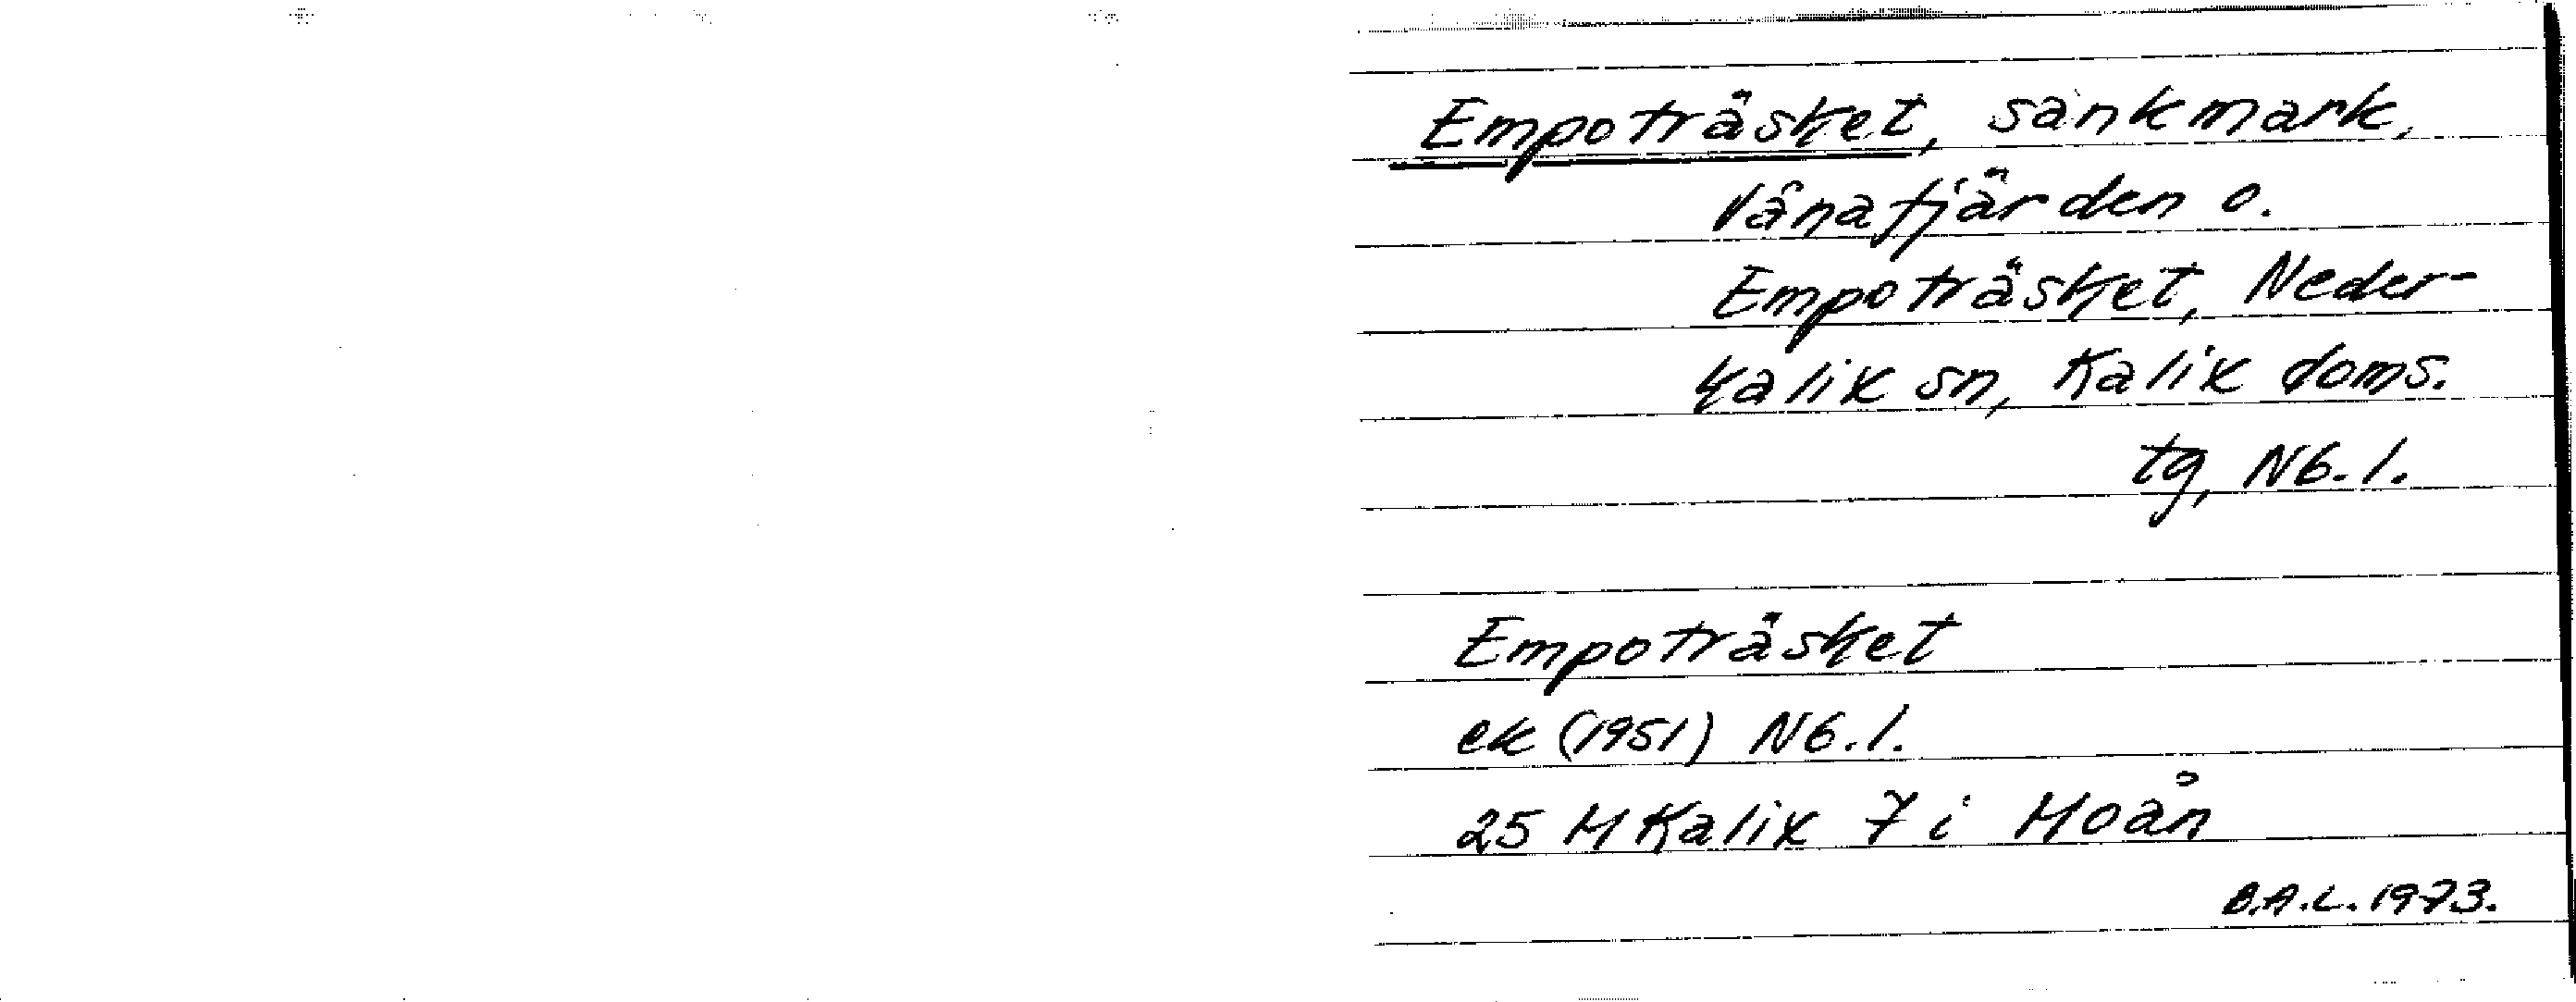 Empoträsket, sankmark,
Vånafjärden o.
Empoträsket, Neder-
kalix sn, Kalix doms.
tg, Nb. l.
Empoträsket
ek (1951) Nb. l.
25 M Kalix 7 i Moån
B.A.L. 1973.